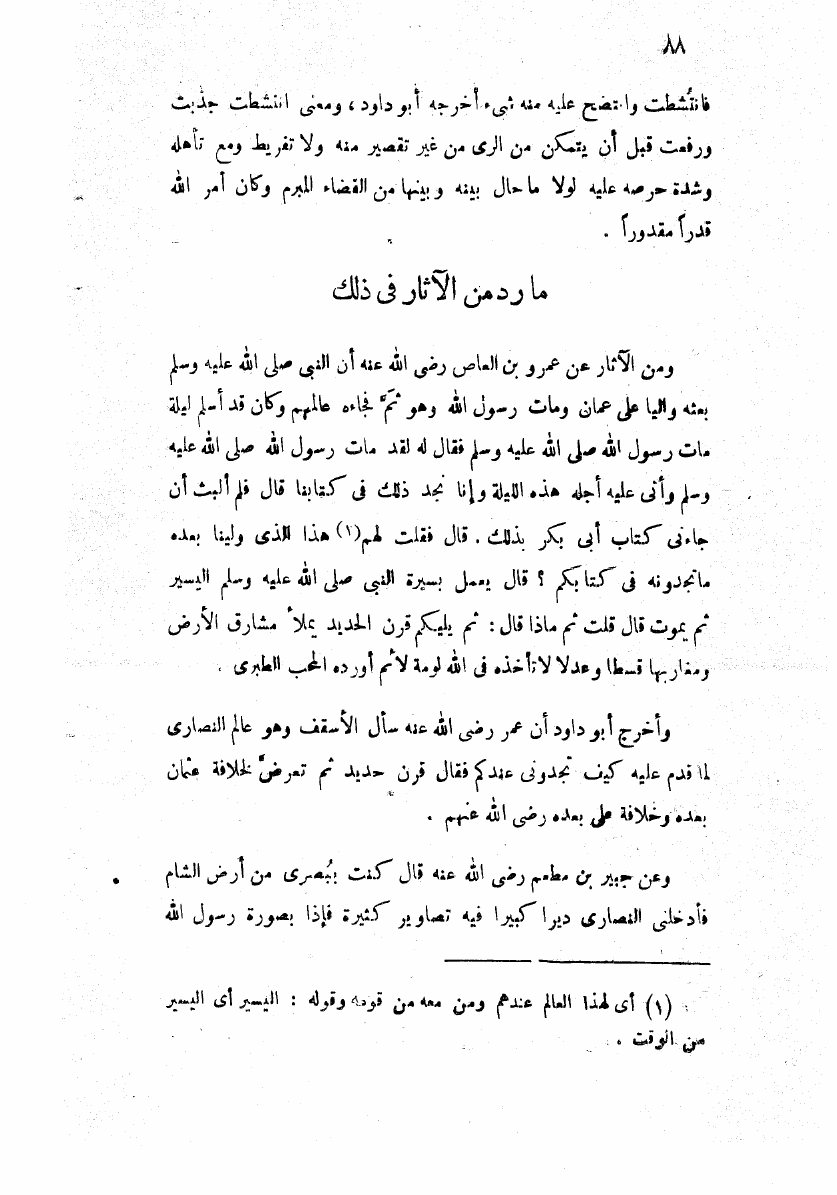 ٨٨
فانتُشطت وانتضح عليه منه شىء أخرجه أبو داود ، ومعنى انتشطت جذبت
ورفعت قبل أن يتمكن من الرى من غير تقصير منه ولا تفريط ومع تأهله
وشدة حرصه عليه لولا ما حال بينه وبينها من القضاء المبرم وكان أمر الله
قدراً مقدوراً .
ما رد من الآثار فى ذلك
ومن الآثار عن عمرو بن العاص رضى الله عنه أن النبى صلى الله عليه وسلم
بعثه واليا على عمان ومات رسول الله وهو ثَمَّ فجاءه عالمهم وكان قد أسلم ليلة
مات رسول الله صلى الله عليه وسلم فقال له لقد مات رسول الله صلى الله عليه
وسلم وأنى عليه أجله هذه الليلة وإنا نجد ذلك فى كتابنا قال فلم ألبث أن
جاءنى كتاب أبى بكر بذلك . قال فقلت لهم(١) هذا الذى ولينا بعده
ماتجدونه فى كتابكم ؟ قال يعمل بسيرة النبى صلى الله عليه وسلم اليسير
ثم يموت قال قلت ثم ماذا قال : ثم يليكم قرن الحديد يملأ مشارق الأرض
ومغاربها قسطا وعدلا لا تأخذه فى الله لومة لائم أورده المحب الطبرى .
وأخرج أبو داود أن عمر رضى الله عنه سأل الأسقف وهو عالم النصارى
لما قدم عليه كيف تجدونى عندكم فقال قرن حديد ثم تعرضَّ لخلافة عثمان
بعده وخلافة على بعده رضى الله عنهم .
وعن جبير بن مطعم رضى الله عنه قال كنت ببُصرى من أرض الشام
فأدخلنى النصارى ديرا كبيرا فيه تصاوير كثيرة فإذا بصورة رسول الله
(١) أى لهذا العالم عندهم ومن معه من قومه وقوله : اليسير أى اليسير
من الوقت .